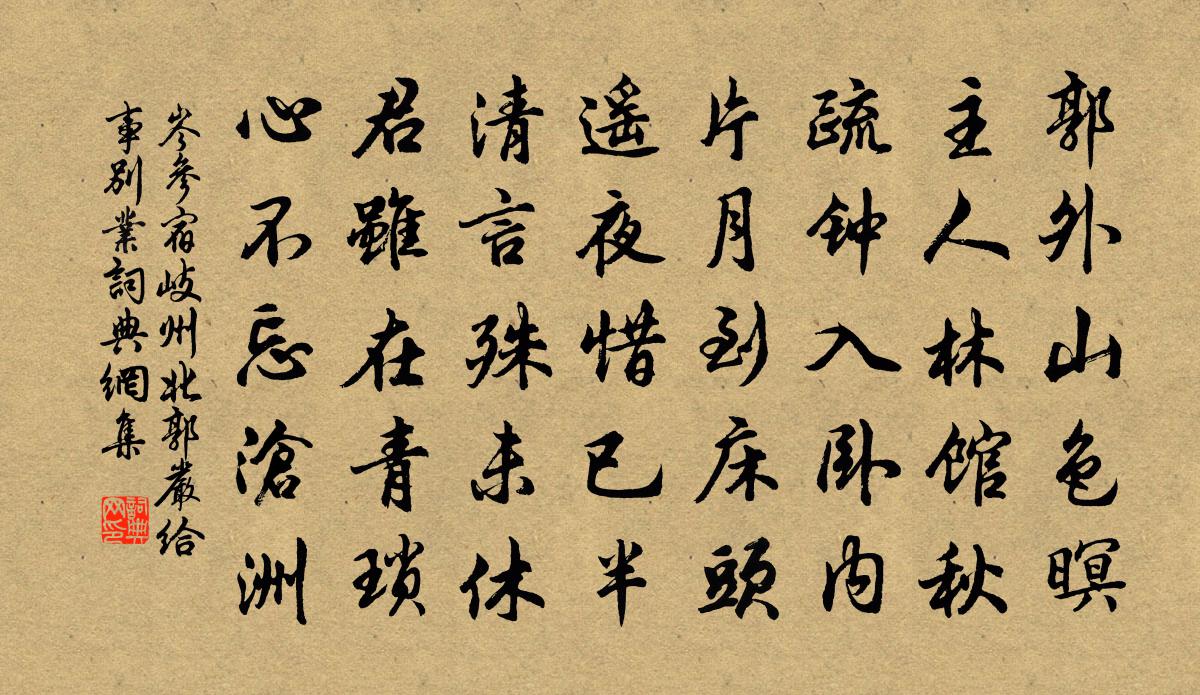 郭外山色暝
主人林馆秋
疏钟入卧内
片月到床頭
遥夜惜已半
清言殊未休
君雖在青瑣
心不忘滄洲
岑參宿岐州北郭嚴给
事别業詞典網集
詞典
网印